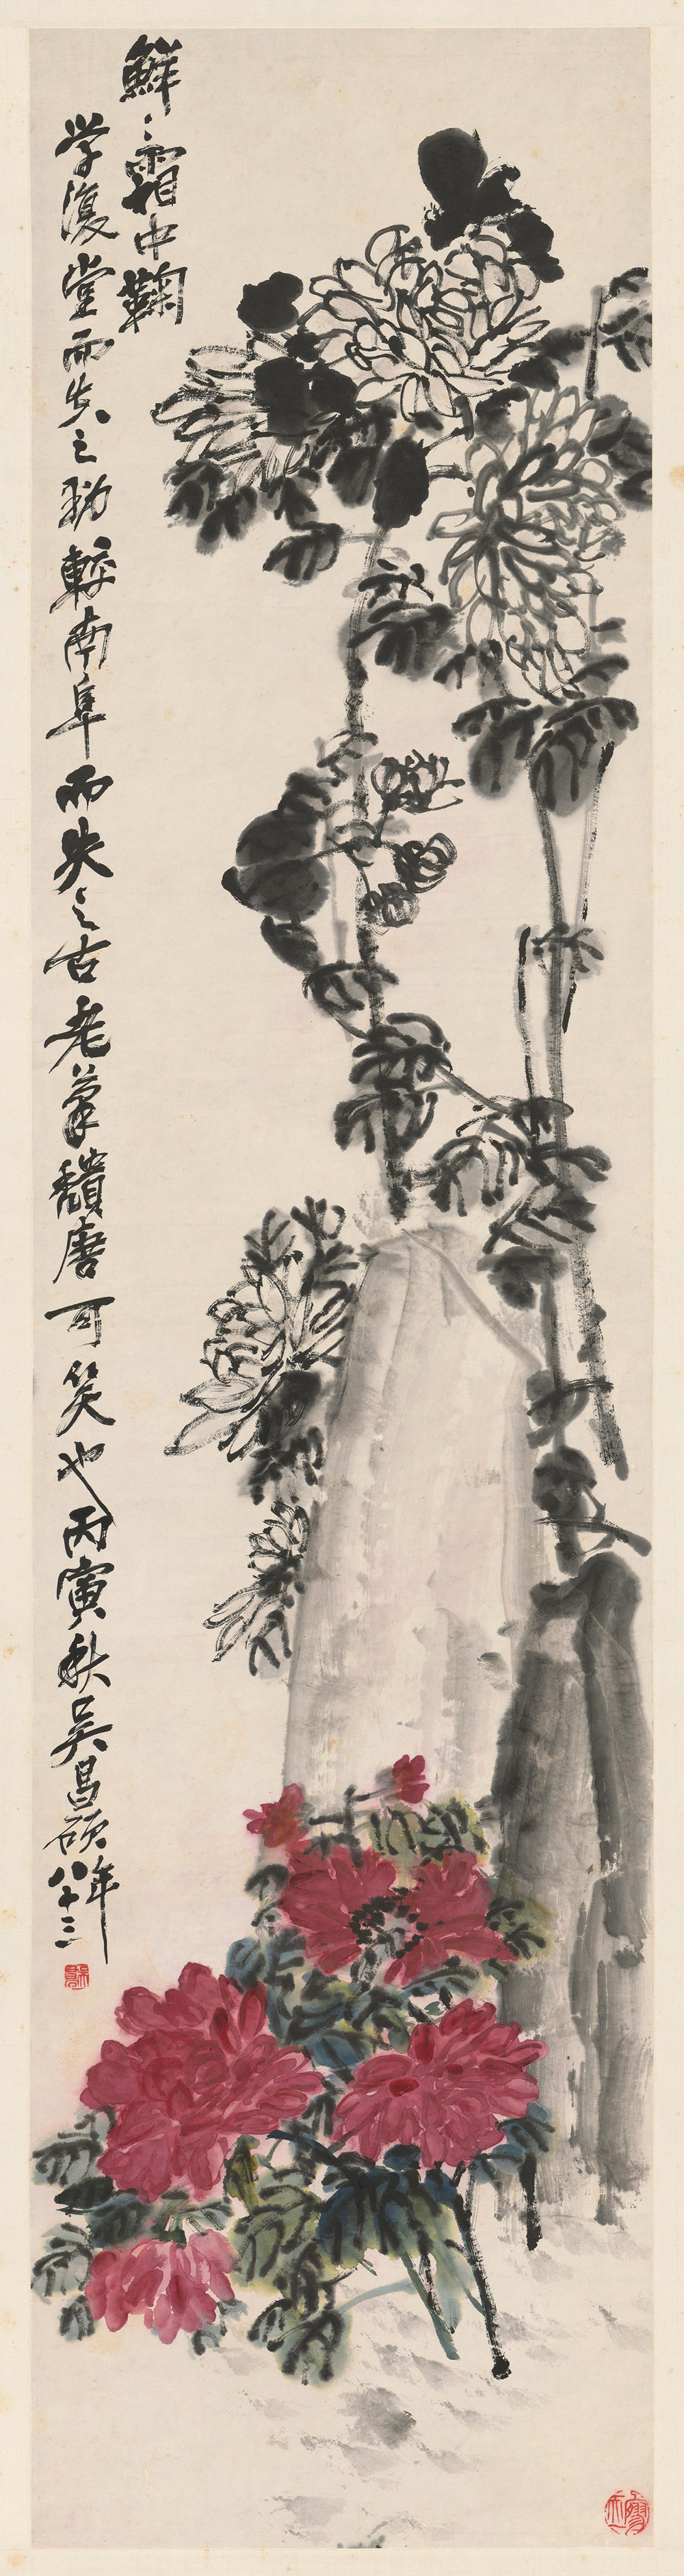 鮮〻霜中鞠
学復堂而失之拗較南阜而失之古老筆積唐可笑也丙寅秋吳昌碩年
八十三